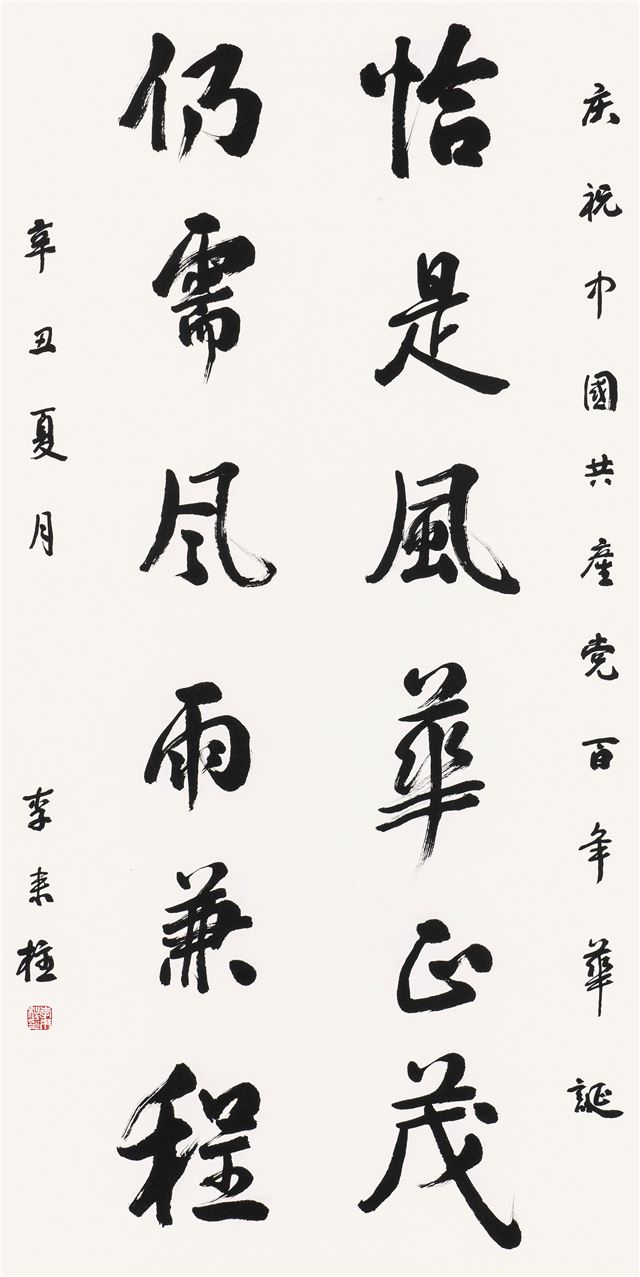 庆祝中國共産党百年華誕
恰是風華正茂
仍需风雨兼程
辛丑夏月
李来柱